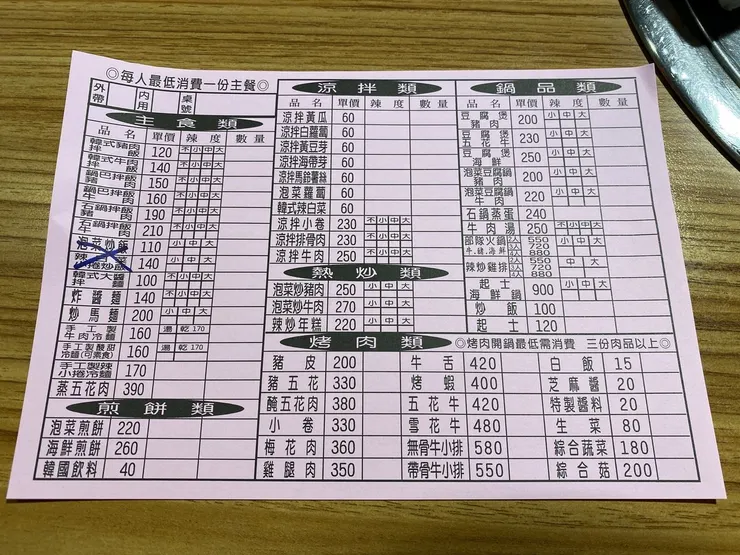 ◎每人最低消費一份主餐◎
外帶 內用 桌號
主食類
品名 單價 辣度 數量
韓式豬肉拌飯 120 不小中大
韓式牛肉拌飯 140 不小中大
鍋巴拌飯豬肉 150 不小中大
鍋巴拌飯牛肉 160 不小中大
石鍋拌飯豬肉 190 不小中大
石鍋拌飯牛肉 210 不小中大
泡菜炒飯 110 小中大
辣 小捲炒飯 140 小中大
韓式大醬拌麵 100 不小中大
炸醬麵 140 不小中大
炒馬麵 200 小中大
手工製牛肉冷麵 160 湯 乾170
手工製酸甜冷麵(可素食) 160 湯 乾170
手工製辣小捲冷麵 170
蒸五花肉 390
煎餅類
泡菜煎餅 220
海鮮煎餅 260
韓國飲料 40
涼拌類
品名 單價 辣度 數量
涼拌黃瓜 60
涼拌白蘿蔔 60
涼拌黃豆芽 60
涼拌海帶芽 60
涼拌馬鈴薯絲 60
泡菜蘿蔔 60
韓式辣白菜 60
涼拌小卷 230 不小中大
涼拌排骨肉 230 不小中大
涼拌牛肉 250 不小中大
熱炒類
泡菜炒豬肉 250 小中大
泡菜炒牛肉 270 小中大
辣炒年糕 220 小中大
鍋品類
品名 單價 辣度 數量
豆腐煲豬肉 200 小中大
豆腐煲五花牛 230 小中大
豆腐煲海鮮 250 小中大
泡菜豆腐鍋豬肉 200 小中大
泡菜豆腐鍋牛肉 220 小中大
石鍋蒸蛋 240
牛肉湯 250 不小中大
部隊火鍋 牛,豬,海鮮 2人550 3人720 4人880 小中大
辣炒雞排 2人550 3人720 4人880 小中大
起士海鮮鍋 900 小中大
炒飯 100
起士 120
烤肉類 ◎烤肉開鍋最低需消費 三份肉品以上◎
豬皮 200 牛舌 420 白飯 15
豬五花 330 烤蝦 400 芝麻醬 20
醃五花肉 380 五花牛 420 特製醬料 20
小卷 330 雪花牛 480 生菜 80
梅花肉 360 無骨牛小排 580 綜合蔬菜 180
雞腿肉 350 帶骨牛小排 550 綜合菇 200